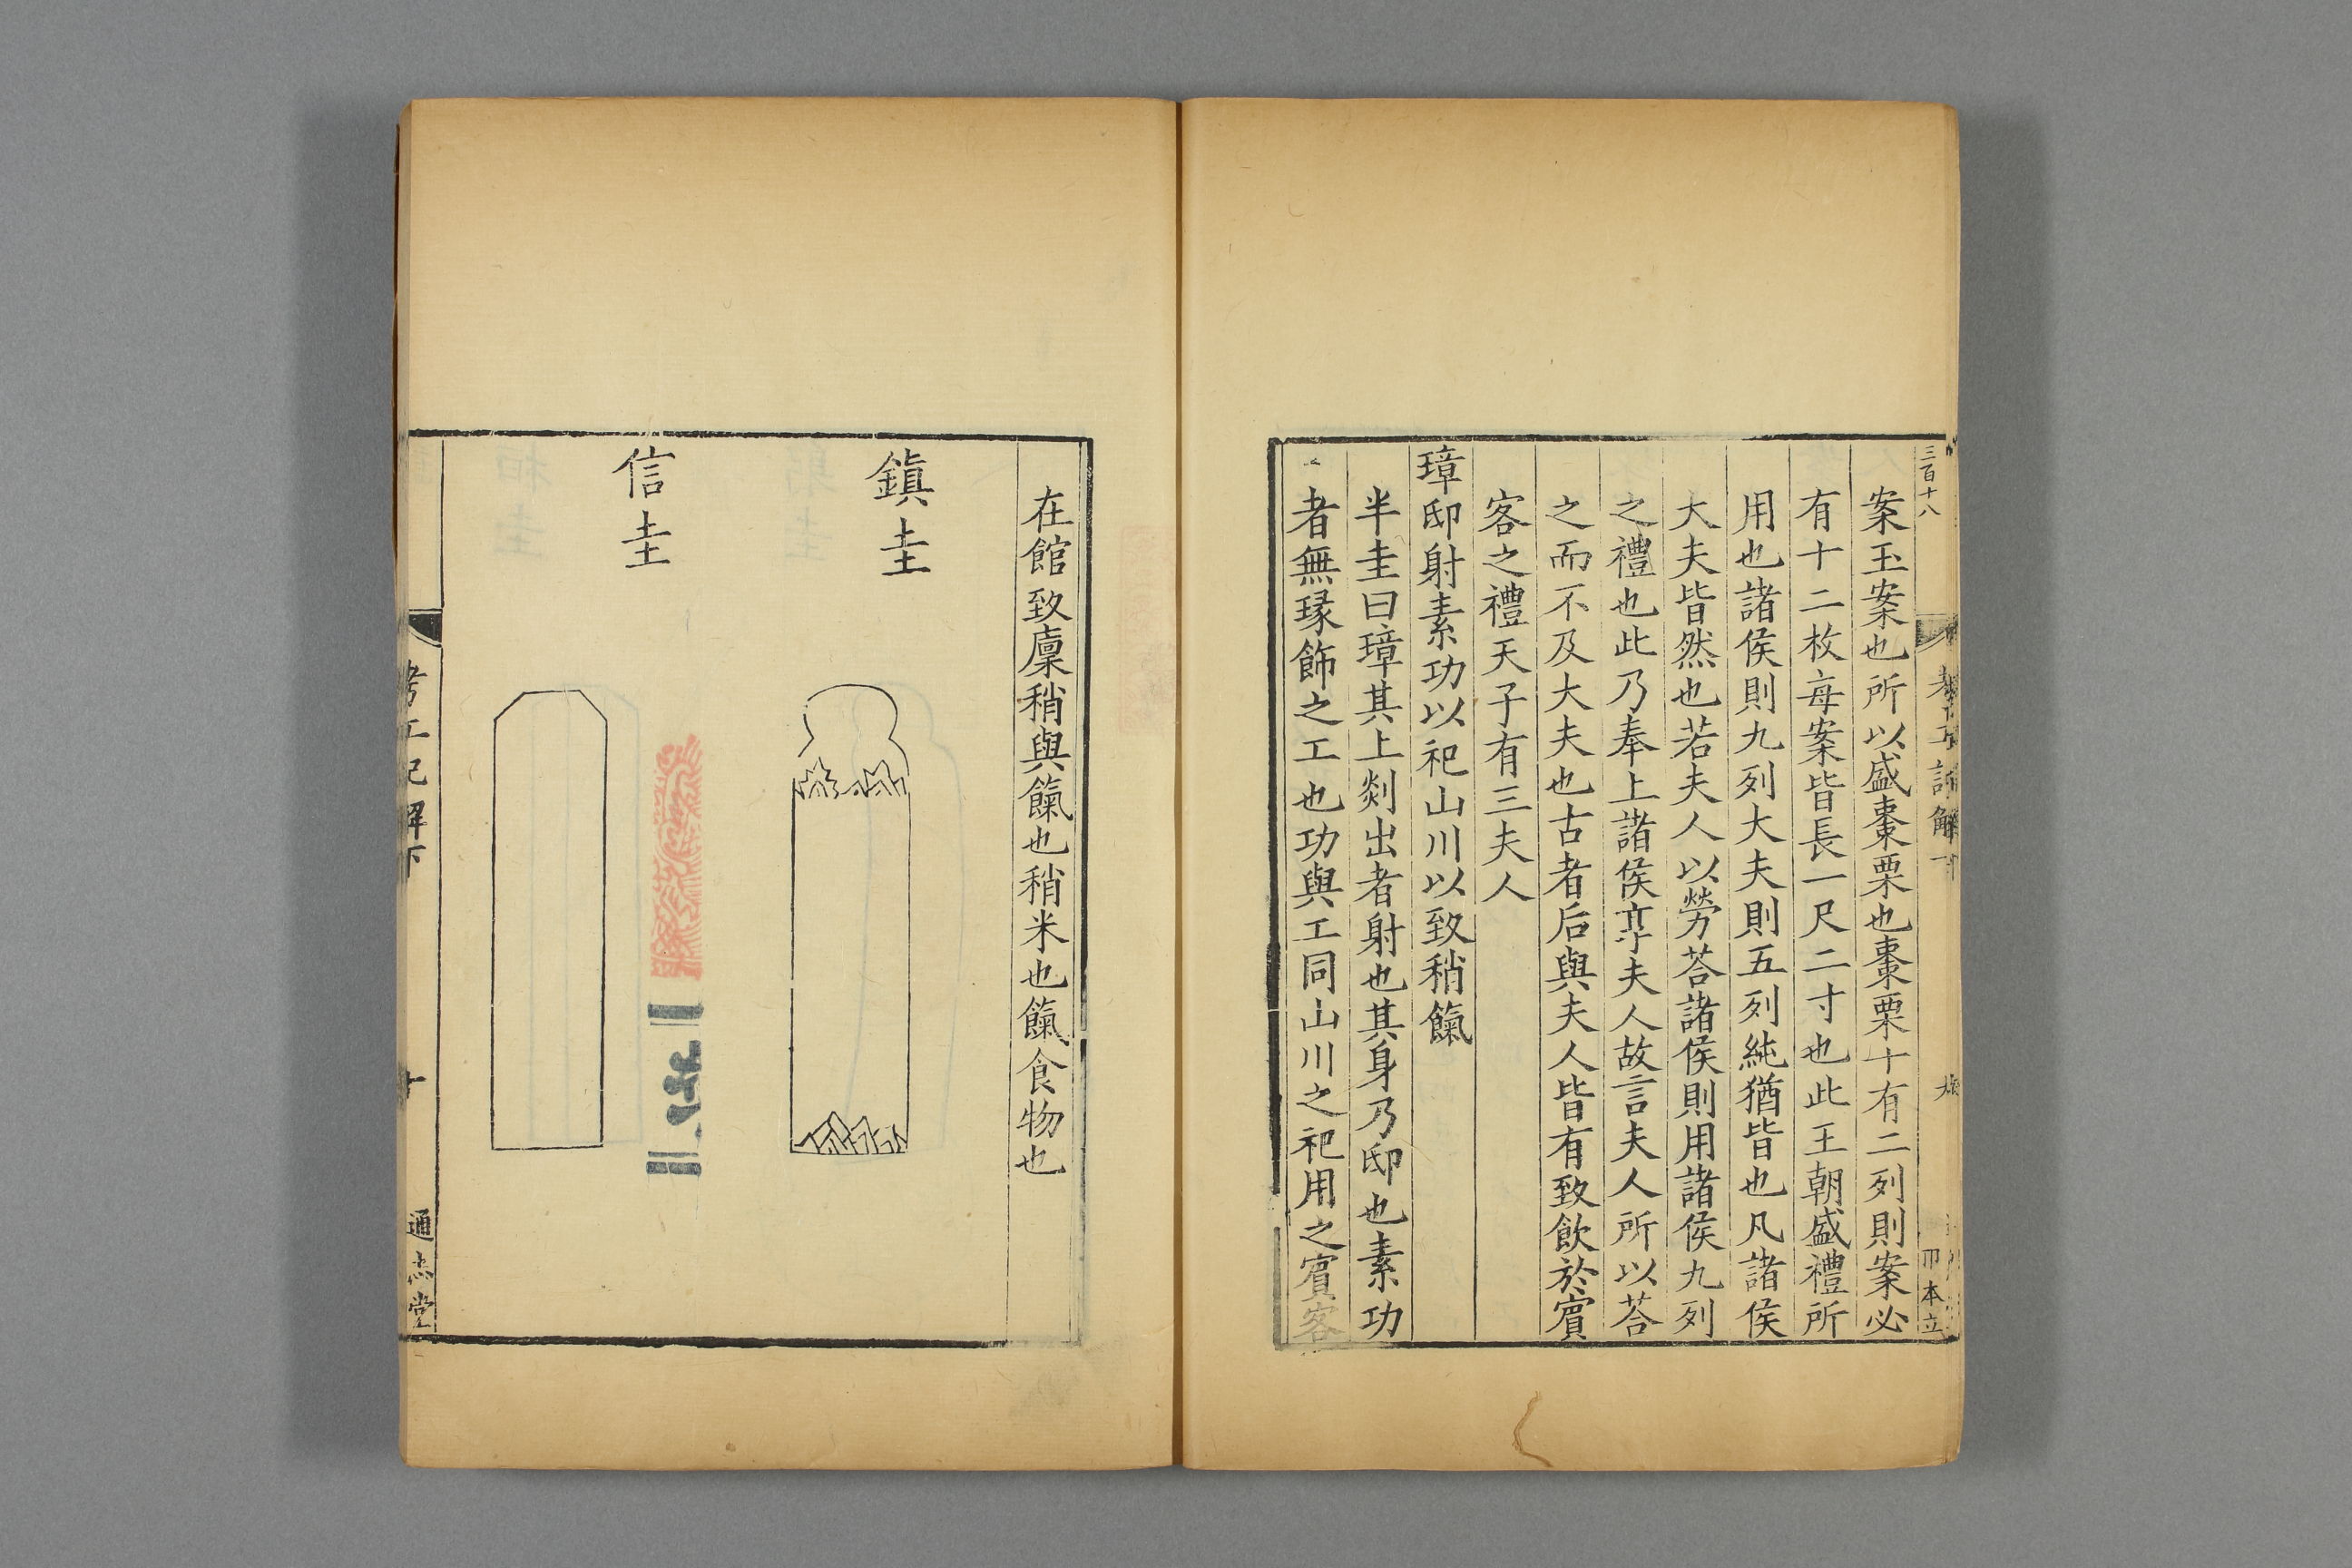 三百十八
案玉案也所以盛棗栗也棗栗十有二列則案必
有十二枚每案皆長一尺二寸也此王朝盛禮所
用也諸侯則九列大夫則五列純猶皆也凡諸侯
大夫皆然也若夫人以勞荅諸侯則用諸侯九列
之禮也此乃奉上諸侯享夫人故言夫人所以荅
之而不及大夫也古者后與夫人皆有致飲於賔
客之禮天子有三夫人
璋邸射素功以祀山川以致稍餼
半圭曰璋其上剡出者射也其身乃邸也素功
者無瑑飾之工也功與工同山川之祀用之賔客
在館致廩稍與餼也稍米也餼食物也
鎮圭
信圭
考工記解下
十
通志堂